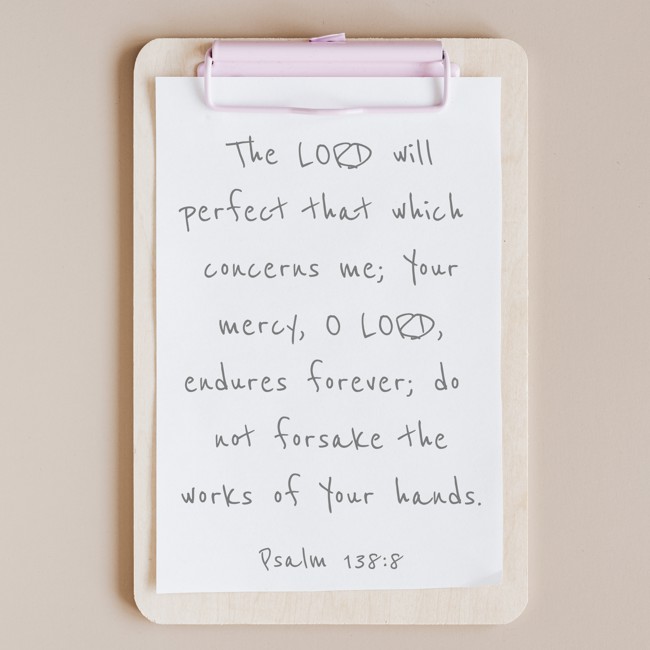 The LORD will
perfect that which
concerns me; Your
mercy, O LORD,
endures forever; do
not forsake the
works of Your hands.
Psalm 138:8